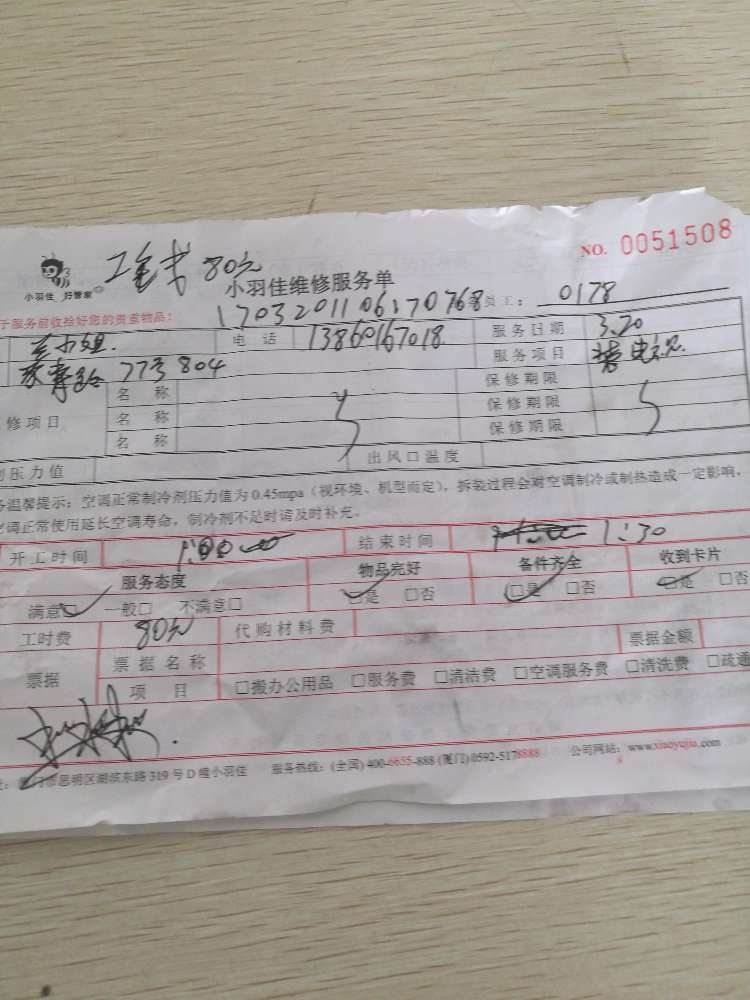 NO. 0051508
80元
小羽佳 好管家
小羽佳维修服务单
1703201106170768 员工: 0178
于服务前收拾好您的贵重物品!
小姐. 电话 13860167018 服务日期 3.20
773 804 服务项目 装电视
修项目 名称 保修期限
名称 保修期限
名称 保修期限
剂压力值 出风口温度
温馨提示:空调正常制冷剂压力值为0.45mpa(视环境、机型而定),拆装过程会对空调制冷或制热造成一定影响,
空调正常使用延长空调寿命,制冷剂不足时请及时补充。
开工时间 1:00 结束时间 1:30
服务态度 物品完好 备件齐全 收到卡片
满意□ 一般□ 不满意□ □是 □否 □是 □否 □是 □否
工时费 80元 代购材料费
票据 票据名称 票据金额
项目 □搬办公用品 □服务费 □清洁费 □空调服务费 □清洗费 □疏通
厦门市思明区湖滨东路319号D幢小羽佳 服务热线:(全国)400-6655-888 (厦门)0592-5178888 公司网站:www.xiaoyujia.com